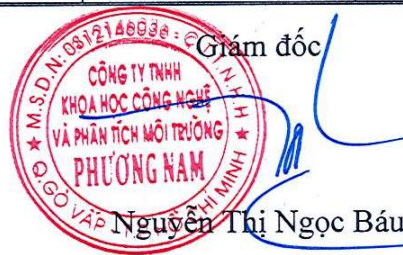 Giám đốc
M.S.D.N: 0312146036 - C.T.T.N.H.H
CÔNG TY TNHH
KHOA HỌC CÔNG NGHỆ
VÀ PHÂN TÍCH MÔI TRƯỜNG
PHƯƠNG NAM
Q.GÒ VẤP HỒ CHÍ MINH
Nguyễn Thị Ngọc Báu